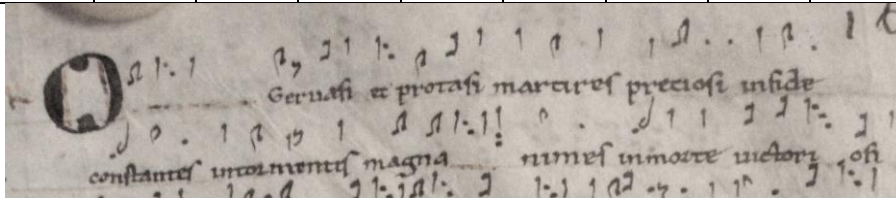 O Geruasi et protasi martires preciosi infide
constantes intormentis magna nimes inmorte uictori osi